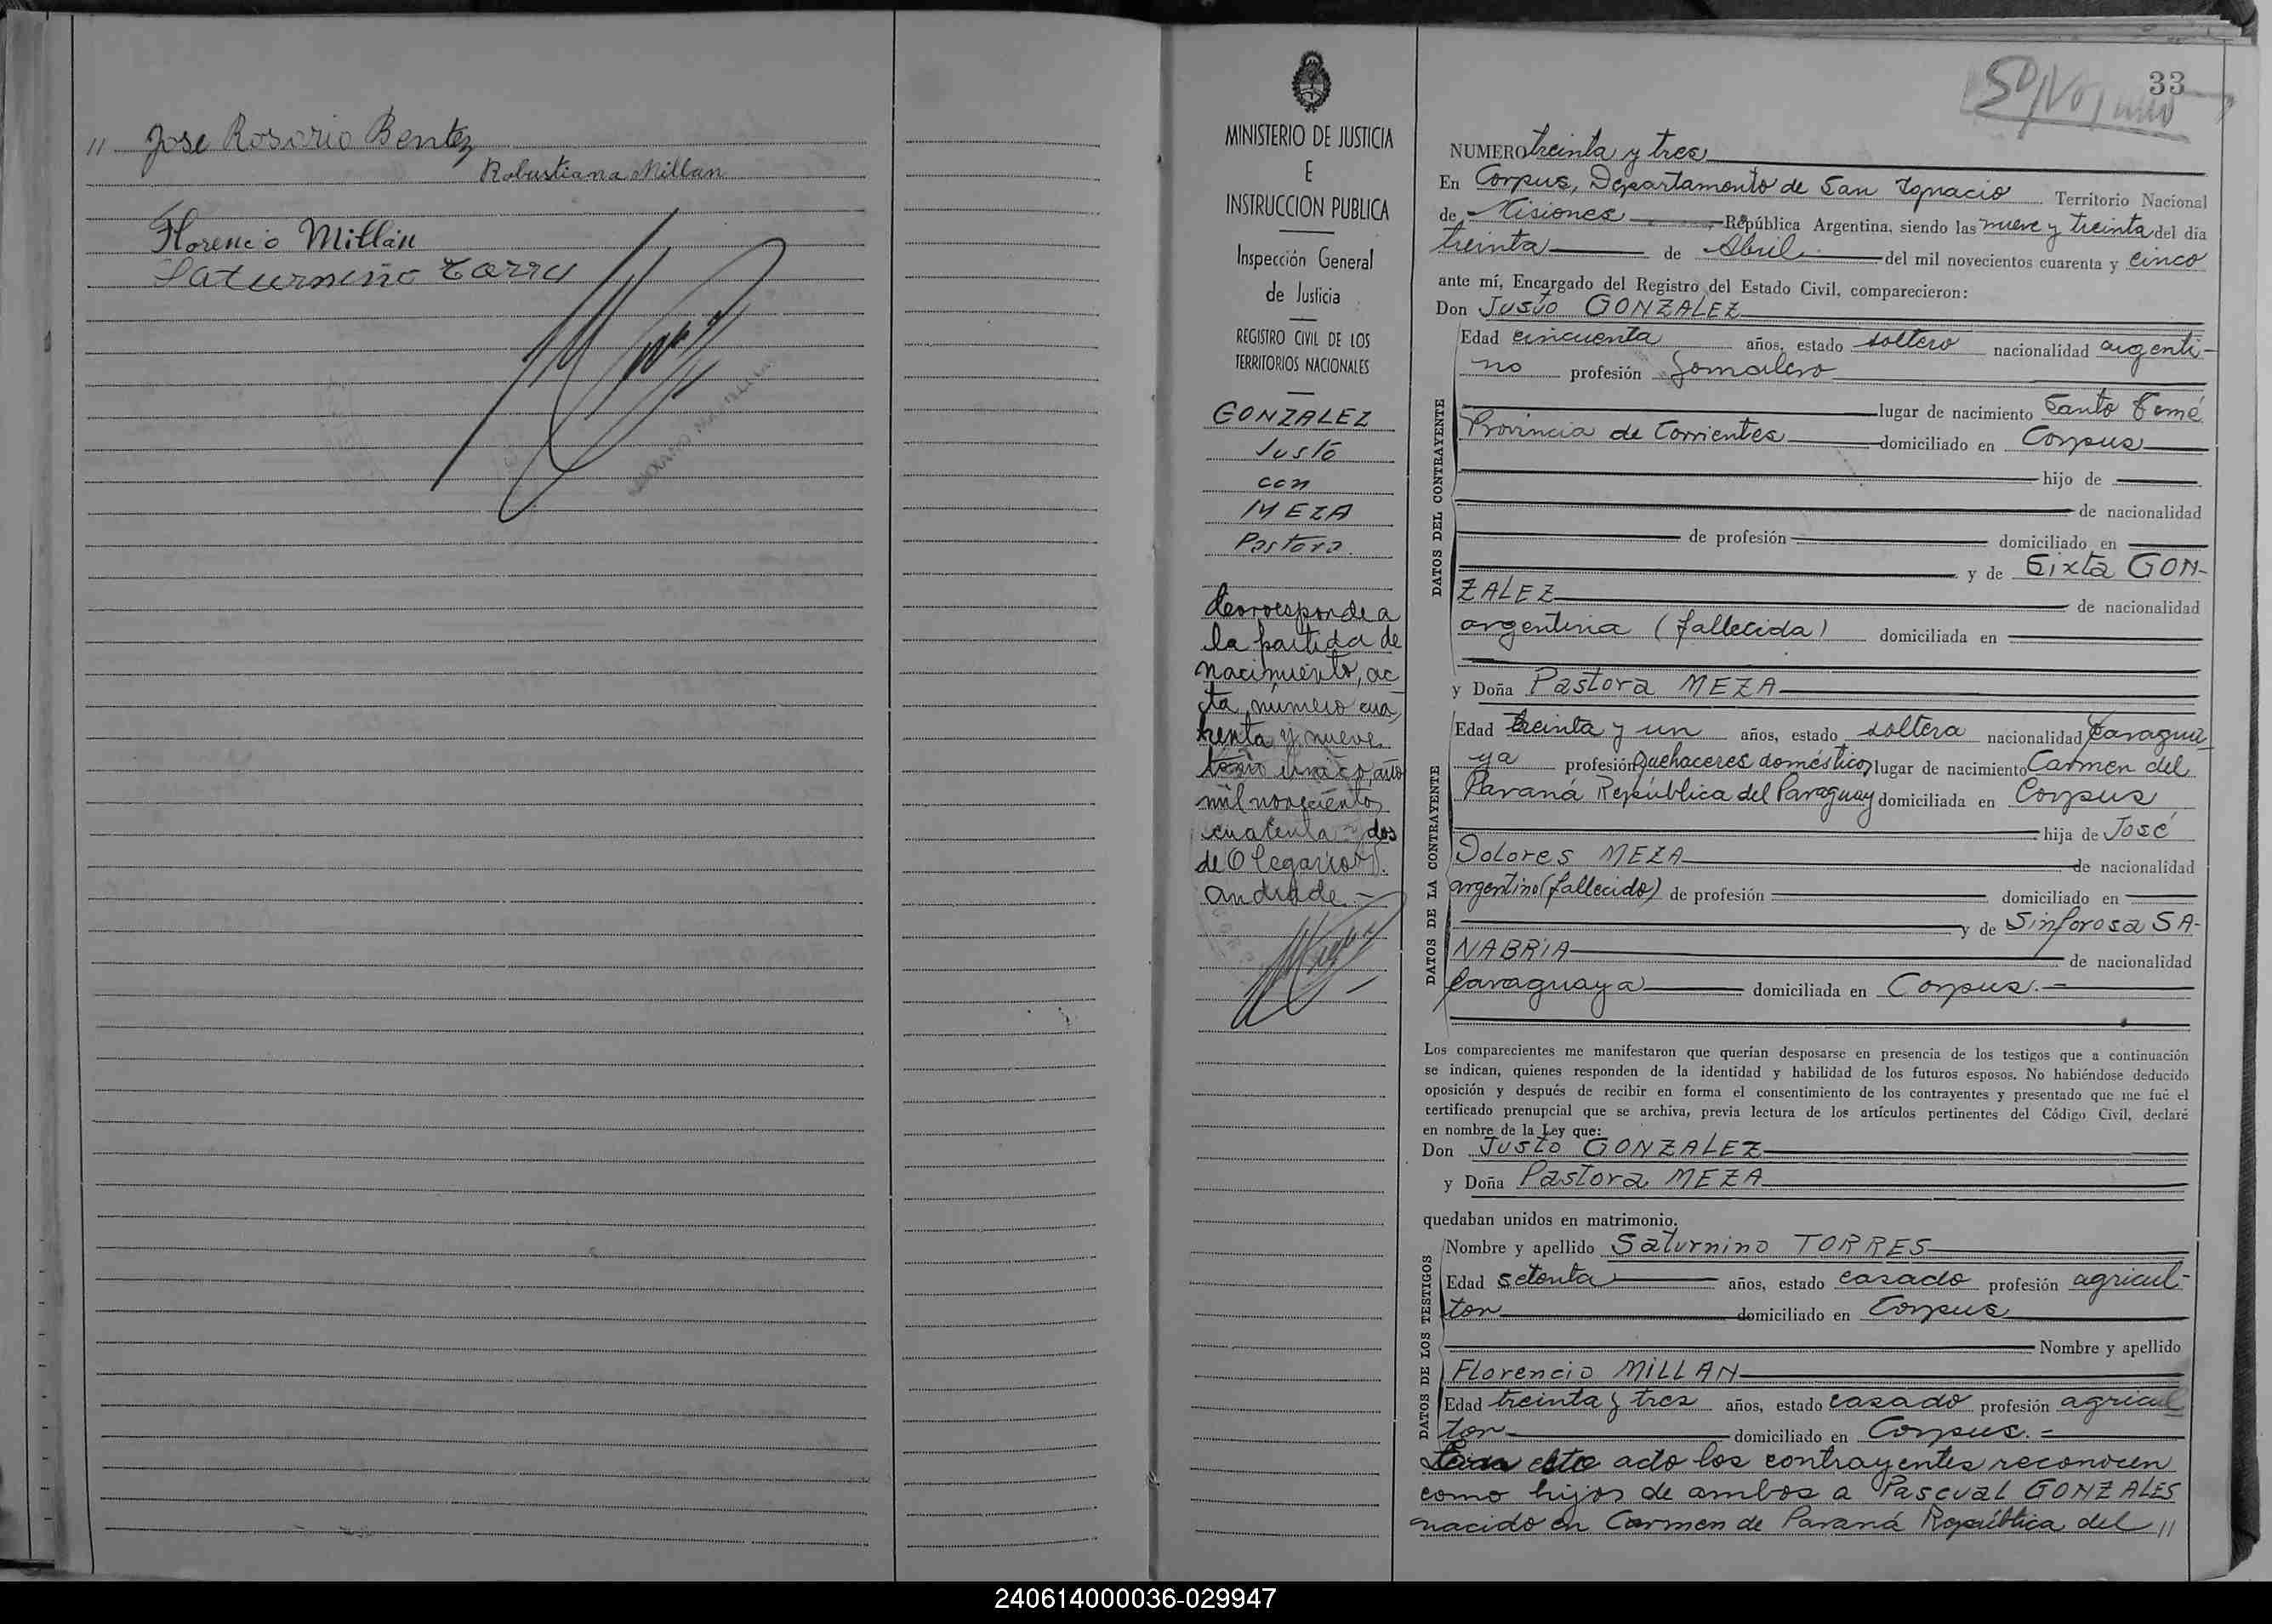 " Jose Rosario Bentez
Robustiana Millan
Florencio Millán
Saturnino Torres
MINISTERIO DE JUSTICIA
E
INSTRUCCION PUBLICA
Inspección General
de Justicia
REGISTRO CIVIL DE LOS
TERRITORIOS NACIONALES
GONZALEZ
Justo
con
MEZA
Pastora.
Corresponde a
la partida de
nacimiento, ac
ta número cua
renta y nueve
tomo unico, año
mil novecientos
cuarenta y dos
de Olegario V.
Andrade.-
33
NUMERO treinta y tres
En Corpus, Departamento de San Ignacio Territorio Nacional
de Misiones República Argentina, siendo las nueve y treinta del día
treinta de Abril del mil novecientos cuarenta y cinco
ante mí, Encargado del Registro del Estado Civil, comparecieron:
Don Justo GONZALEZ
DATOS DEL CONTRAYENTE
Edad cincuenta años, estado soltero nacionalidad argenti-
no profesión Jornalero
lugar de nacimiento Santo Tomé
Provincia de Corrientes domiciliado en Corpus
hijo de
de nacionalidad
de profesión domiciliado en
y de Sixta GON-
ZALEZ de nacionalidad
argentina (fallecida) domiciliada en
y Doña Pastora MEZA
DATOS DE LA CONTRAYENTE
Edad treinta y un años, estado soltera nacionalidad paragua-
ya profesión Quehaceres domésticos lugar de nacimiento Carmen del
Paraná República del Paraguay domiciliada en Corpus
hija de José
Dolores MEZA de nacionalidad
argentino (fallecido) de profesión domiciliado en
y de Sinforosa SA-
NABRIA de nacionalidad
paraguaya domiciliada en Corpus.-
Los comparecientes me manifestaron que querían desposarse en presencia de los testigos que a continuación
se indican, quienes responden de la identidad y habilidad de los futuros esposos. No habiéndose deducido
oposición y después de recibir en forma el consentimiento de los contrayentes y presentado que me fué el
certificado prenupcial que se archiva, previa lectura de los artículos pertinentes del Código Civil, declaré
en nombre de la Ley que:
Don Justo GONZALEZ
y Doña Pastora MEZA
quedaban unidos en matrimonio.
DATOS DE LOS TESTIGOS
Nombre y apellido Saturnino TORRES
Edad setenta años, estado casado profesión agricul-
tor domiciliado en Corpus
Nombre y apellido
Florencio MILLAN
Edad treinta y tres años, estado casado profesión agricul
tor domiciliado en Corpus.-
este acto los contrayentes reconocen
como hijos de ambos a Pascual GONZALES
nacido en Carmen de Paraná República del "
240614000036-029947